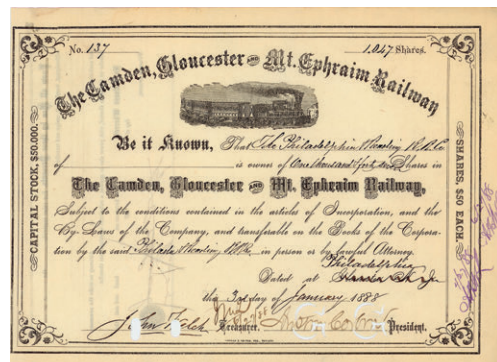 No. 137
1,047 Shares.
The Camden, Gloucester and Mt. Ephraim Railway
Be it Known, That The Philadelphia & Reading R.R. Co
of is owner of One thousand & forty seven Shares in
The Camden, Gloucester and Mt. Ephraim Railway,
Subject to the conditions contained in the articles of Incorporation, and the
By-Laws of the Company, and transferable on the Books of the Corpora-
tion by the said Philada & Reading R.R. Co, in person or by lawful Attorney.
Philadelphia
Dated at
this 3rd day of January 1888
John Welch Treasurer. President.
CAPITAL STOCK, $50,000.
SHARES, $50 EACH